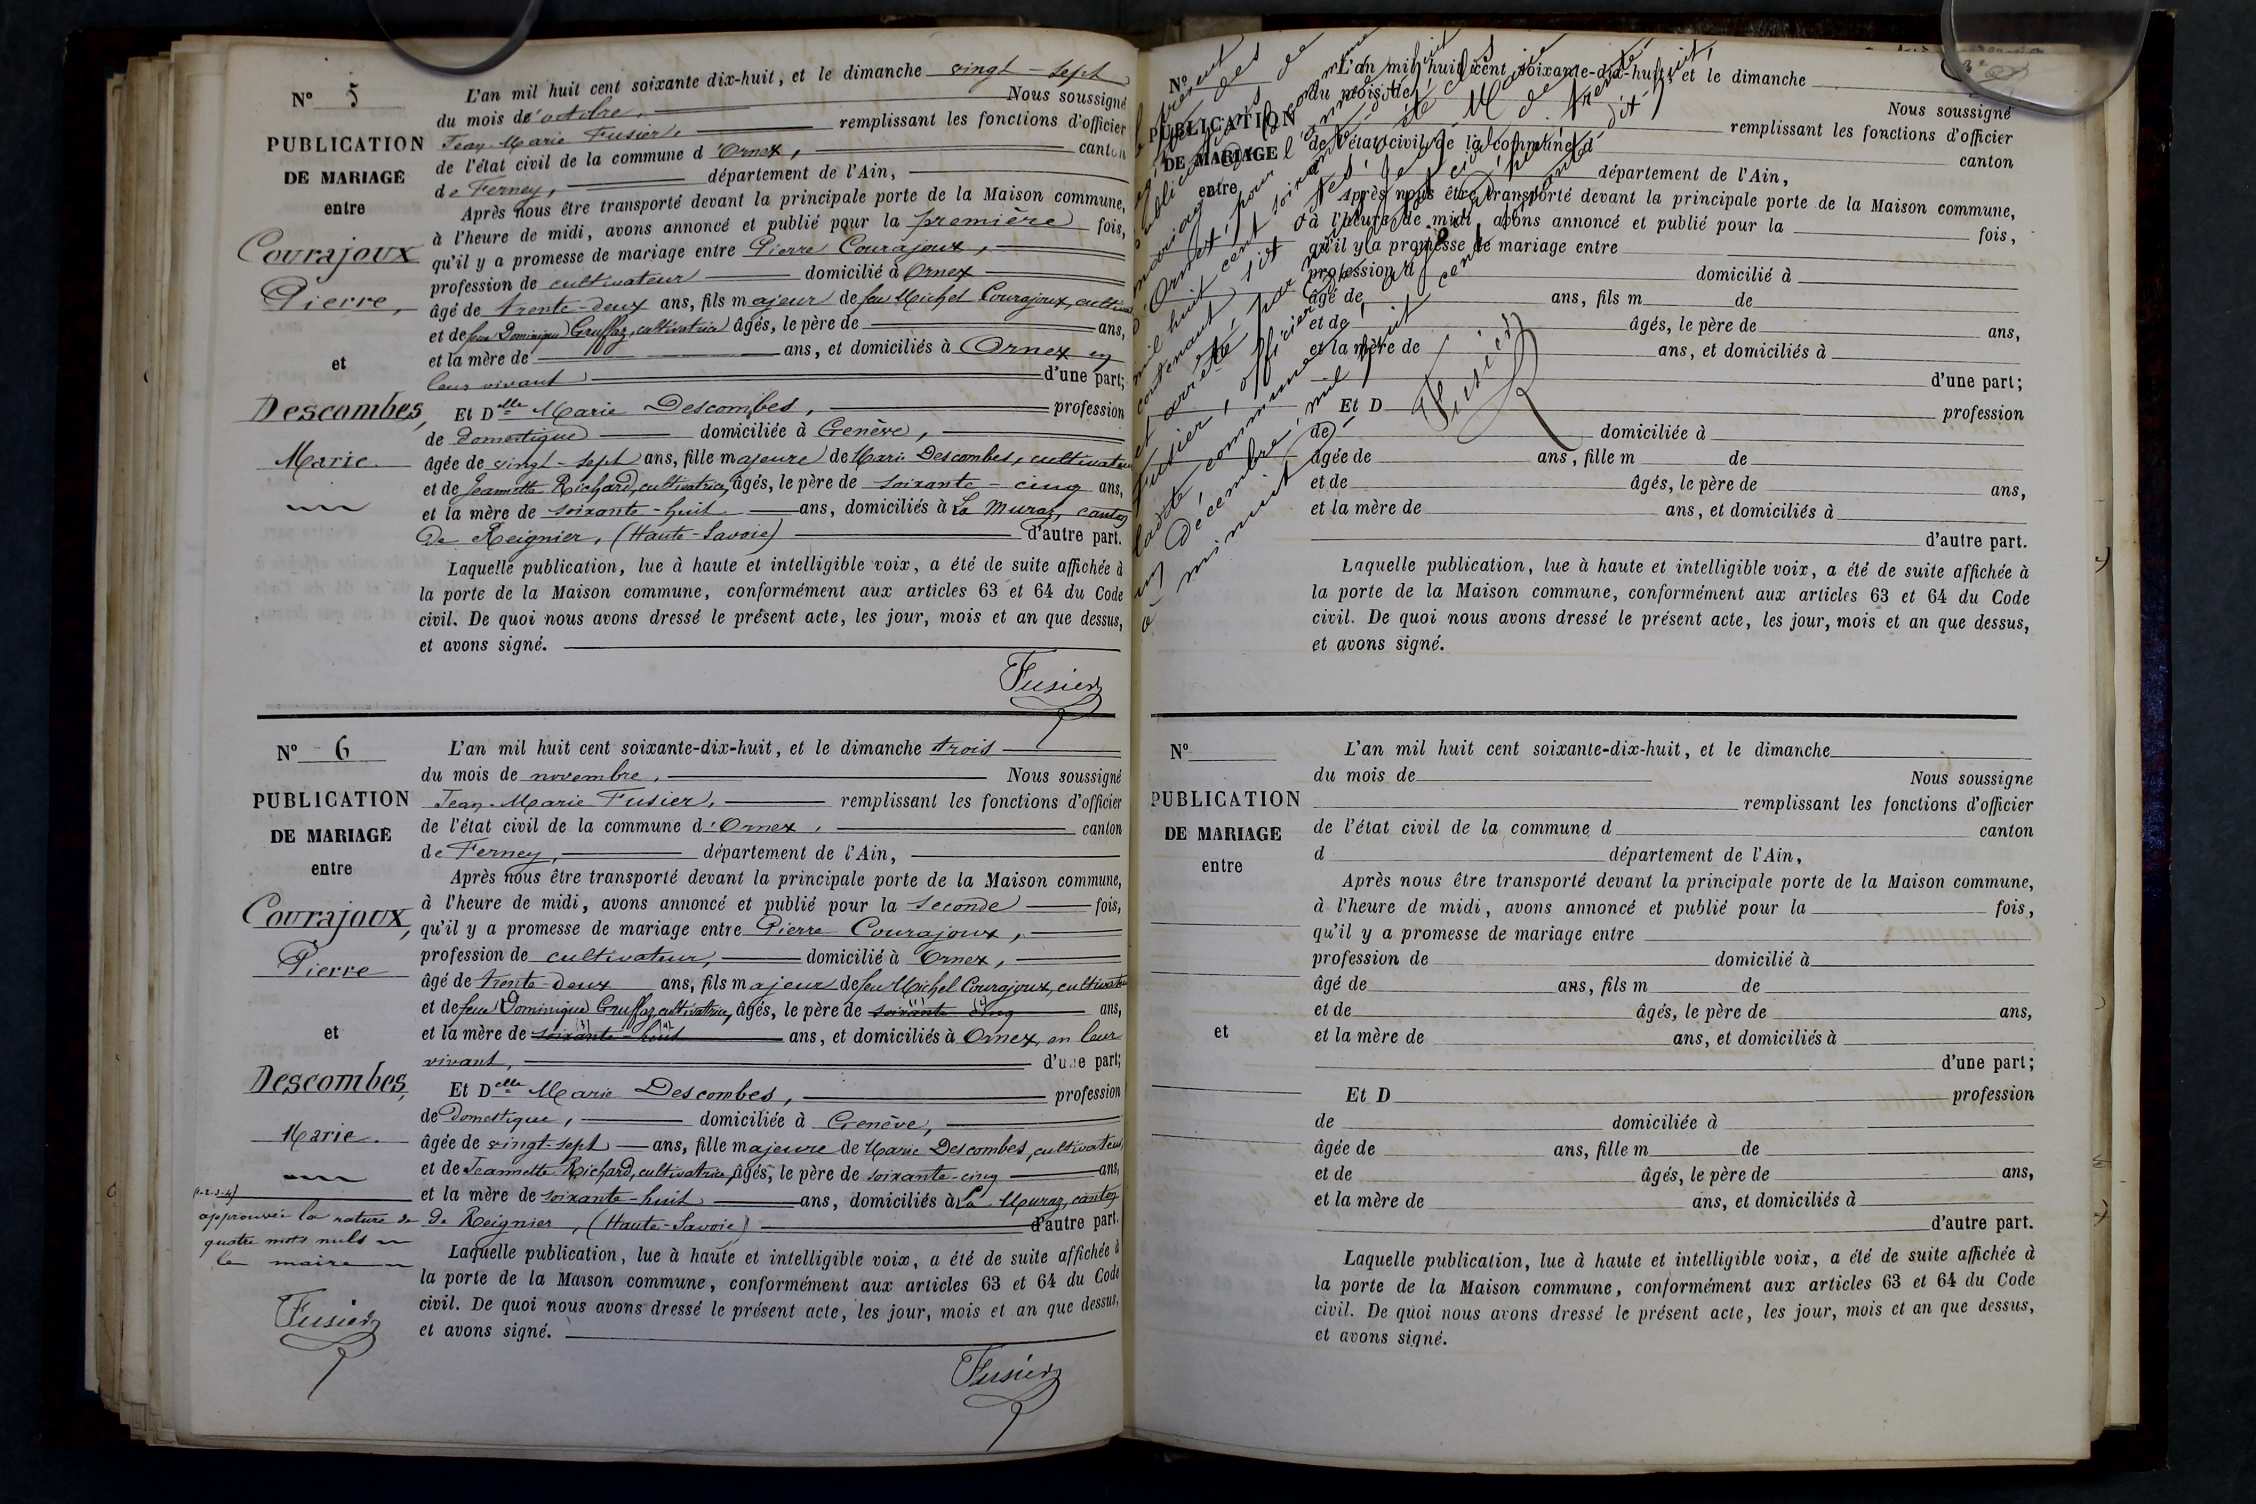 N° 5
PUBLICATION
DE MARIAGE
entre
Courajoux
Pierre,
et
Descombes,
Marie.
L'an mil huit cent soixante dix-huit, et le dimanche vingt-sept
du mois d'octobre, Nous soussigné
Jean-Marie Fusier, remplissant les fonctions d'officier
de l'état civil de la commune d'Ornex, canton
de Ferney, département de l'Ain,
Après nous être transporté devant la principale porte de la Maison commune,
à l'heure de midi, avons annoncé et publié pour la première fois,
qu'il y a promesse de mariage entre Pierre Courajoux,
profession de cultivateur domicilié à Ornex
âgé de trente-deux ans, fils majeur de feu Michel Courajoux, cultiva
et de feue Dominique Gruffaz, cultivatrice âgés, le père de ans,
et la mère de ans, et domiciliés à Ornex en
leur vivant d'une part;
Et Delle Marie Descombes, profession
de domestique domiciliée à Genève,
âgée de vingt-sept ans, fille majeure de Marie Descombes, cultivateur
et de Jeannette Richard, cultivatrice, âgés, le père de soixante-cinq ans,
et la mère de soixante-huit ans, domiciliés à La Muraz, canton
de Reignier, (Haute-Savoie) d'autre part.
Laquelle publication, lue à haute et intelligible voix, a été de suite affichée à
la porte de la Maison commune, conformément aux articles 63 et 64 du Code
civil. De quoi nous avons dressé le présent acte, les jour, mois et an que dessus,
et avons signé.
Fusier
N° 6
PUBLICATION
DE MARIAGE
entre
Courajoux,
Pierre
et
Descombes,
Marie.
(1-2-3-4)
approuvée la rature de
quatre mots nuls
le maire
Fusier
L'an mil huit cent soixante-dix-huit, et le dimanche trois
du mois de novembre, Nous soussigné
Jean-Marie Fusier, remplissant les fonctions d'officier
de l'état civil de la commune d'Ornex, canton
de Ferney, département de l'Ain,
Après nous être transporté devant la principale porte de la Maison commune,
à l'heure de midi, avons annoncé et publié pour la seconde fois,
qu'il y a promesse de mariage entre Pierre Courajoux,
profession de cultivateur, domicilié à Ornex,
âgé de trente-deux ans, fils majeur de feu Michel Courajoux, cultivateur
et de feue Dominique Gruffaz cultivatrice, âgés, le père de soixante cinq ans,
et la mère de soixante-huit ans, et domiciliés à Ornex, en leur
vivant, d'une part;
Et Delle Marie Descombes, profession
de domestique, domiciliée à Genève,
âgée de vingt-sept ans, fille majeure de Marie Descombes, cultivateur,
et de Jeannette Richard, cultivatrice, âgés, le père de soixante-cinq ans,
et la mère de soixante-huit ans, domiciliés à La Muraz, canton
de Reignier, (Haute-Savoie) d'autre part.
Laquelle publication, lue à haute et intelligible voix, a été de suite affichée à
la porte de la Maison commune, conformément aux articles 63 et 64 du Code
civil. De quoi nous avons dressé le présent acte, les jour, mois et an que dessus,
et avons signé.
Fusier
N°
PUBLICATION
DE MARIAGE
entre
L'an mil huit cent soixante-dix-huit, et le dimanche
du mois de Nous soussigné
remplissant les fonctions d'officier
de l'état civil de la commune d canton
département de l'Ain,
Après nous être transporté devant la principale porte de la Maison commune,
à l'heure de midi, avons annoncé et publié pour la fois,
qu'il y a promesse de mariage entre
profession d domicilié à
âgé de ans, fils m de
et de âgés, le père de ans,
et la mère de ans, et domiciliés à
d'une part;
Et D profession
de domiciliée à
âgée de ans, fille m de
et de âgés, le père de ans,
et la mère de ans, et domiciliés à
d'autre part.
Laquelle publication, lue à haute et intelligible voix, a été de suite affichée à
la porte de la Maison commune, conformément aux articles 63 et 64 du Code
civil. De quoi nous avons dressé le présent acte, les jour, mois et an que dessus,
et avons signé.
présent
des
de
mariage
d'Ornex, pour l'année
mil huit cent soixante dix huit
contenant six
et arrêté, par nous,
Fusier, officier
ladite commune,
décembre, mil huit cent soixante-dix-huit,
à minuit
Fusier
N°
PUBLICATION
DE MARIAGE
entre
et
L'an mil huit cent soixante-dix-huit, et le dimanche
du mois de Nous soussigne
remplissant les fonctions d'officier
de l'état civil de la commune d canton
d département de l'Ain,
Après nous être transporté devant la principale porte de la Maison commune,
à l'heure de midi, avons annoncé et publié pour la fois,
qu'il y a promesse de mariage entre
profession de domicilié à
âgé de ans, fils m de
et de âgés, le père de ans,
et la mère de ans, et domiciliés à
d'une part;
Et D profession
de domiciliée à
âgée de ans, fille m de
et de âgés, le père de ans,
et la mère de ans, et domiciliés à
d'autre part.
Laquelle publication, lue à haute et intelligible voix, a été de suite affichée à
la porte de la Maison commune, conformément aux articles 63 et 64 du Code
civil. De quoi nous avons dressé le présent acte, les jour, mois et an que dessus,
et avons signé.